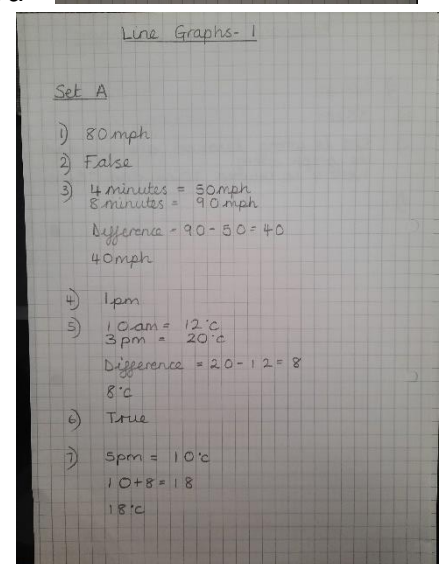 Line Graphs- 1
Set A
1) 80mph
2) False
3) 4 minutes = 50mph
8 minutes = 90mph
Difference - 90-50=40
40mph
4) 1pm
5) 10am = 12°C
3pm = 20°C
Difference = 20-12=8
8°C
6) True
7) 5pm = 10°C
10+8=18
18°C